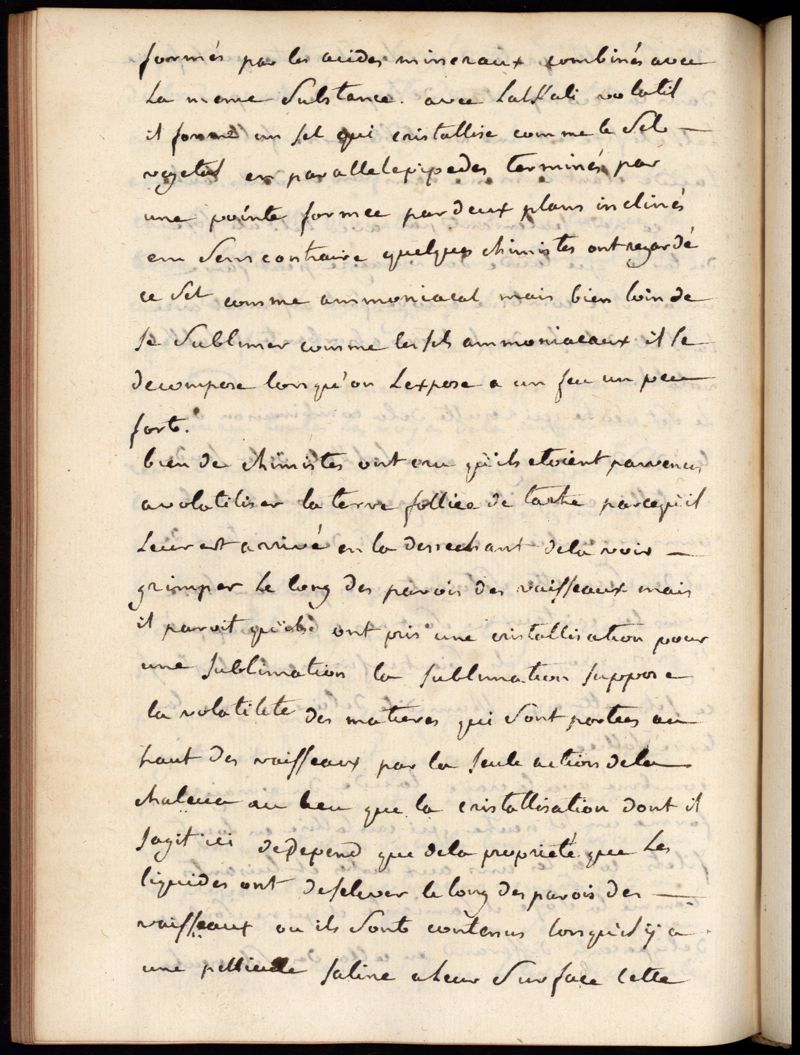 formés par les acides mineraux combinés avec
la meme Substance. avec Lalkali volatil
il forme un sel qui cristallise comme le Sel
vegetal en parallelepipedes terminés par
une pointe formee par deux plans inclinés
en Sens contraire quelques chimistes ont regardé
ce Sel comme ammoniacal mais bien loin de
se Sublimer comme les sels ammoniacaux il se
decompose lorsqu'on Lexpose a un feu un peu
fort.
bien de chimistes ont cru qu'ils etoient parvenus
a volatiliser la terre folliee de tartre parcequ'il
Leur est arrivé en la dessechant dela voir
grimper Le long des parois des vaisseaux mais
il paroit qu'ils ont pris une cristallisation pour
une sublimation la sublimation suppose
la volatilité des matieres qui Sont portées au
haut des vaisseaux par la seule action dela
chaleur au lieu que la cristallisation dont il
sagit ici depend que dela proprieté que Les
liquides ont deselever le long des parois des
vaisseaux ou ils Sont contenus lorsquil y a
une pellicule saline a Leur Surface Cette